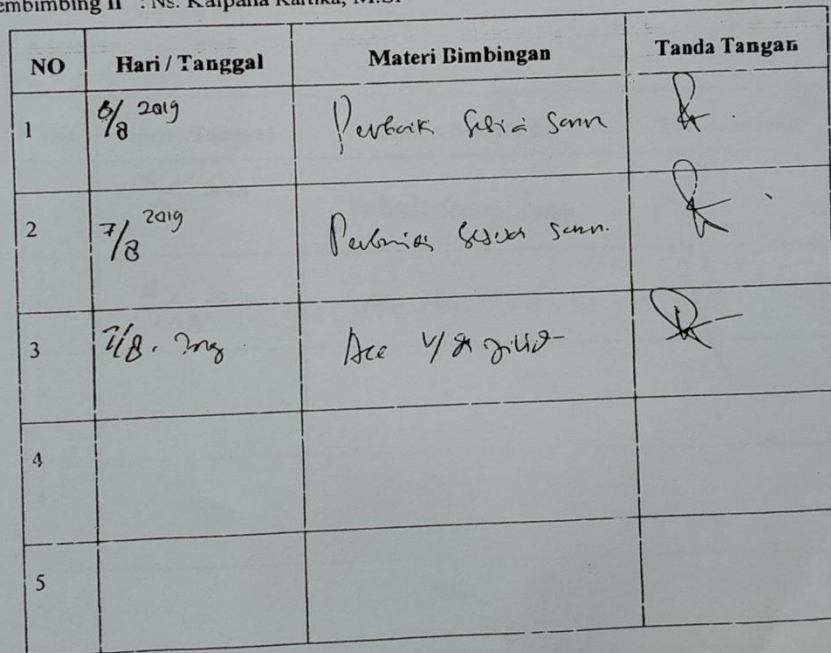 embimbing II : Ns. Kalpana Kartika, M.Si
NO Hari / Tanggal Materi Bimbingan Tanda Tangan
1 6/8 2019 Perbaik sesuai saran
2 7/8 2019 sesuai saran.
3 7/8. Acc
4
5